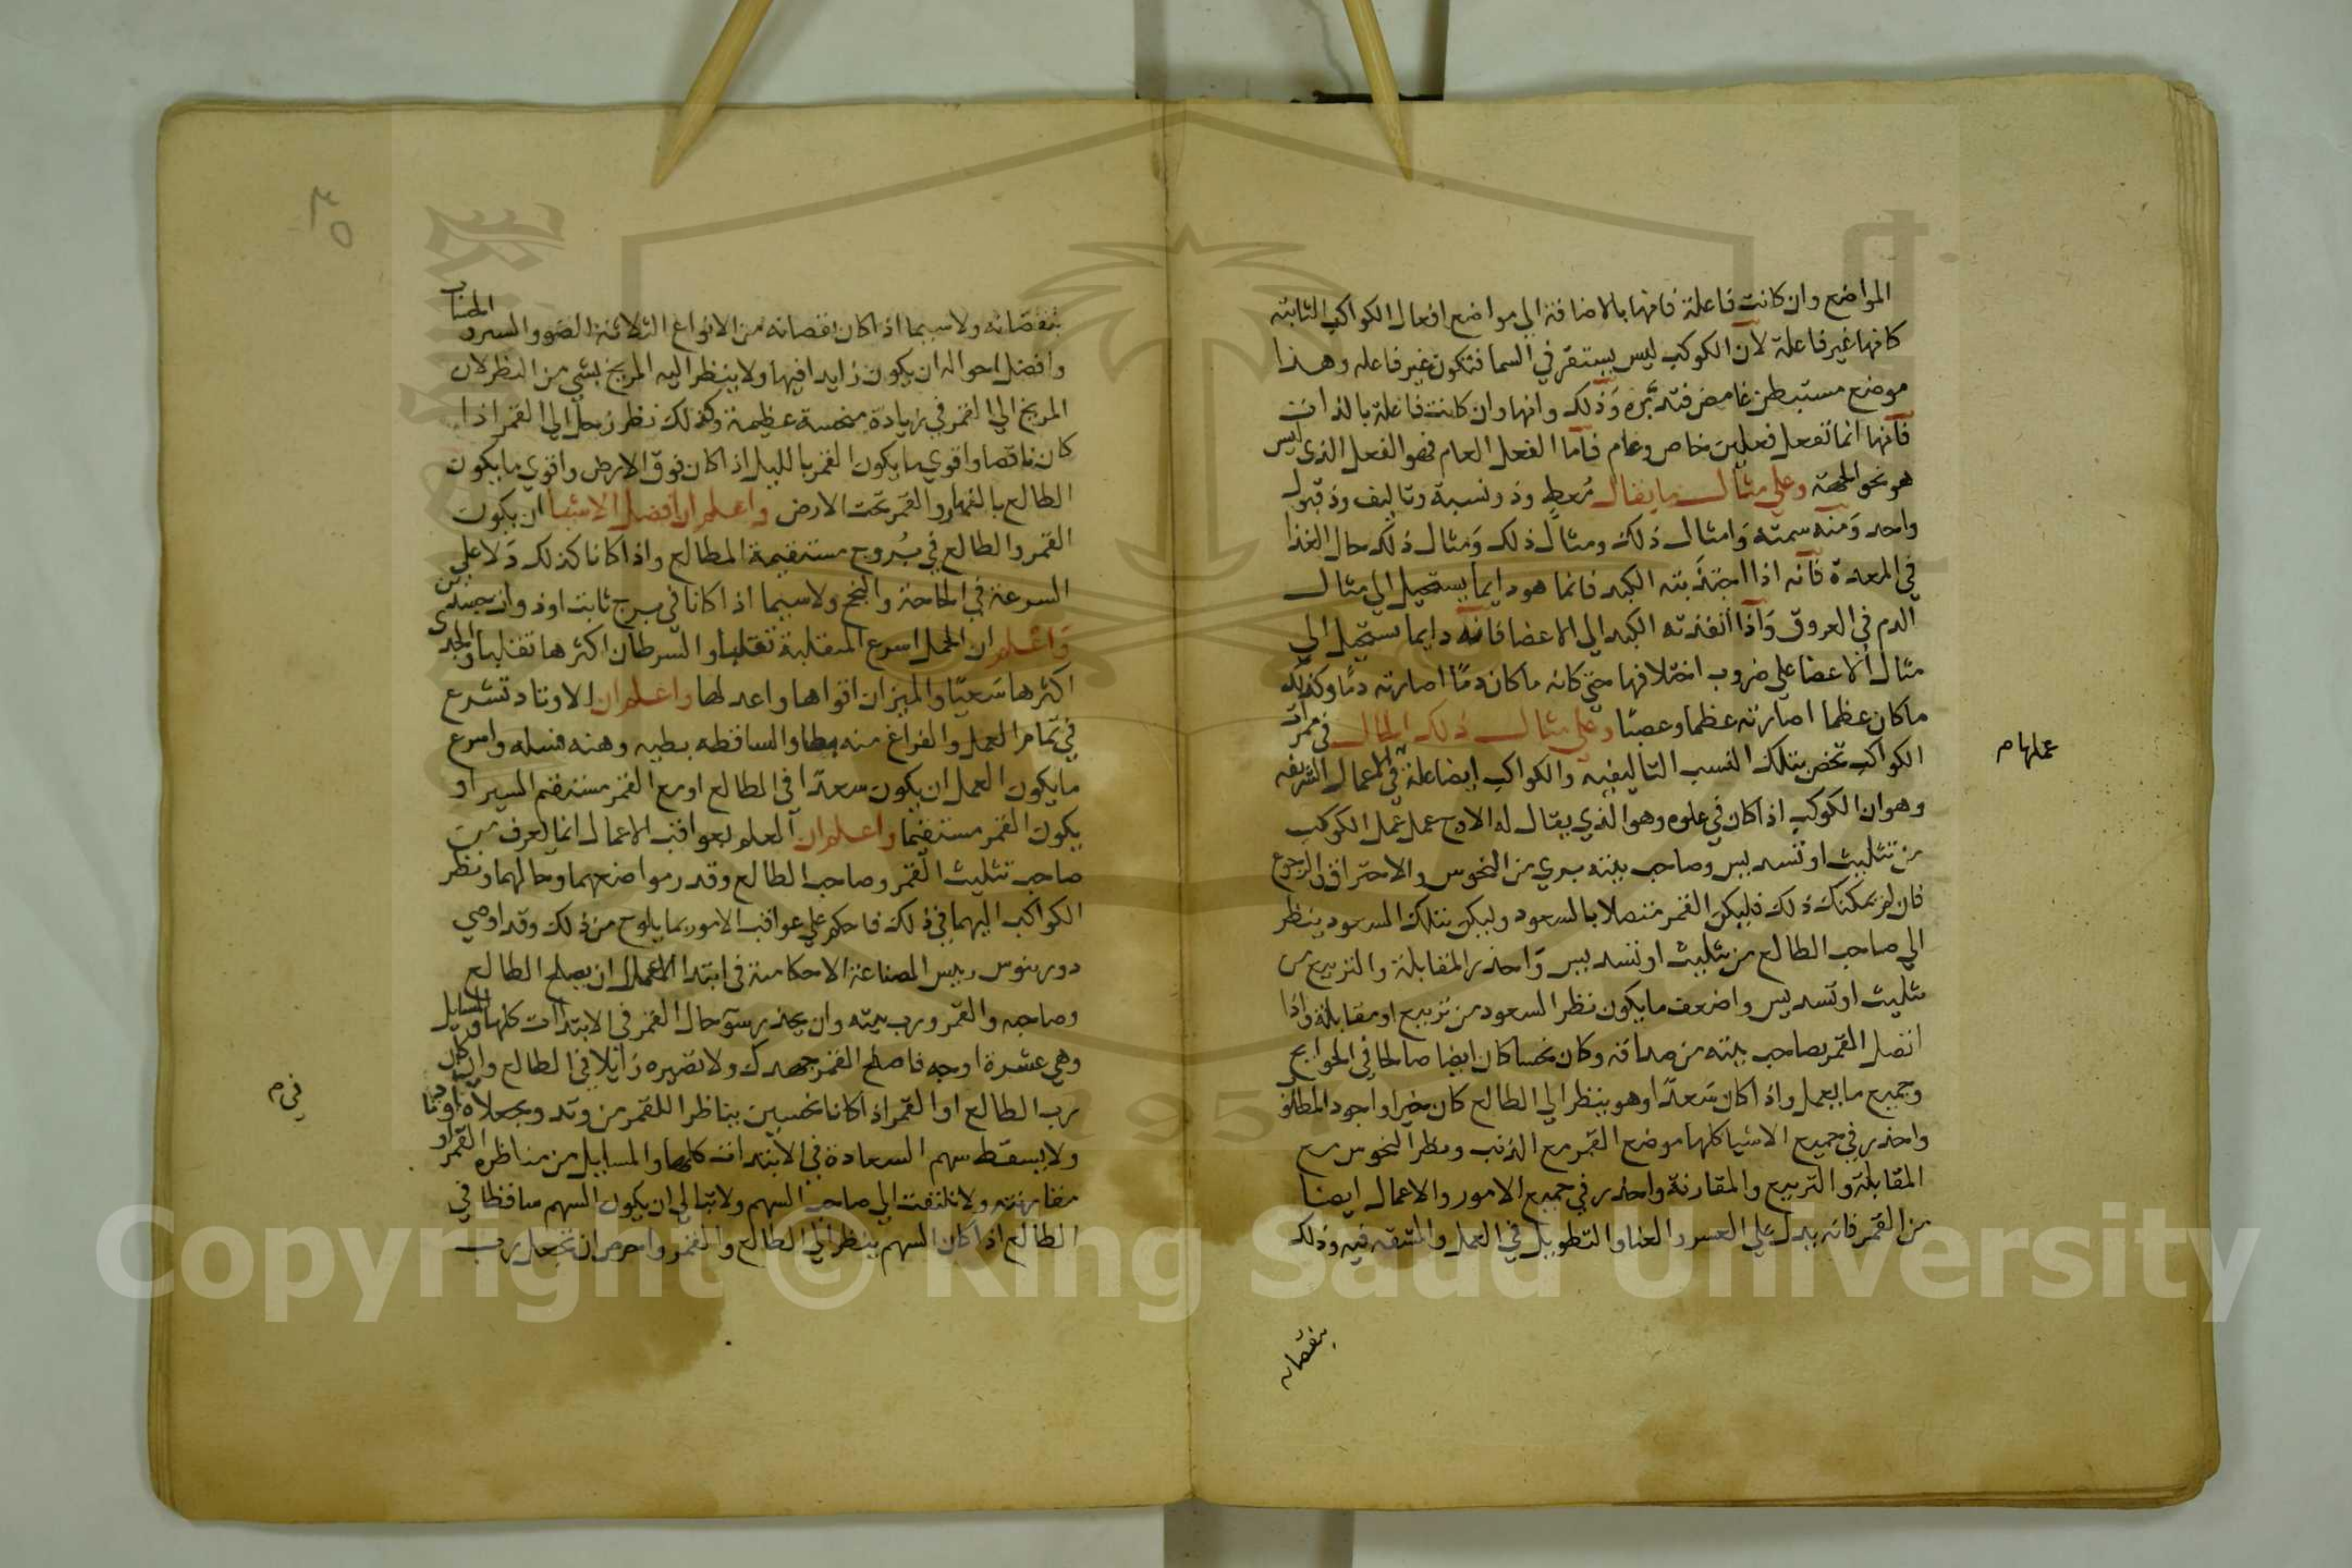 المواضع وان كانت فاعلة فانها بالاضافة الي مواضع افعال الكواكب الثابته
كانها غير فاعلة لان الكوكب ليس يستقر في السما فتكون غير فاعله وهذا
موضع مستبطن غامض فتدبره وذلك وانها وان كانت فاعلة بالذات
فانها انما تفعل فعلين خاص وعام فاما الفعل العام فهو الفعل الذي ليس
هو نحو الجهة وعلي مثال ما يقال مُعطٍ وذو نسبة وتاليف وذو قبول
واحد ومنه سمته وامثال ذلك ومثال ذلك ومثال ذلك حال الغذا
في المعدة فانه اذا اجتذبته الكبد فانما هو دايما يستحيل الي مثال
الدم في العروق واذا انفذته الكبد الي الاعضا فانه دايما يستحيل الي
مثال الاعضا علي ضروب اختلافها حتي كانه ما كان دمًا اصارته دمًا وكذلك
ما كان عظما اصارته عظما وعصبًا وعلي مثال ذلك الحال في ممرات
الكواكب تخص بتلك النسب التاليفيه والكواكب ايضا علة في الاعمال الشريفه
عملها م
وهو ان الكوكب اذا كان في علوه وهو الذي يقال له الاوج عمل عمل الكوكب
من تثليث او تسديس وصاحب بيته بري من النحوس والاحتراق والرجوع
فان لم يمكنك ذلك فليكن القمر متصلا بالسعود وليكن بتلك السعود ينظر
الي صاحب الطالع من تثليث او تسديس واحذر المقابلة والتربيع من
تثليث او تسديس واضعف ما يكون نظر السعود من تربيع او مقابلة واذا
اتصل القمر بصاحب بيته من صداقه وكان نحسا كان ايضا صالحا في الحوايج
وجميع ما يعمل واذ كان سعدًا وهو ينظر الي الطالع كان خيرا واجود المطلوب
واحذر في جميع الاشيا كلها موضع القمر مع الذنب ونظر النحوس مع
المقابلة والتربيع والمقارنة واحذر في جميع الامور والاعمال ايضا
من القمر فانه يدل علي العسر والعنا والتطويل في العمل والمشقه فيه وذلك
بنقصانه
٣٥
بنقصانه ولاسيما اذا كان نقصانه من الانواع الثلاثة الضو والسير والحساب
وافضل احواله ان يكون زايدا فيها ولا ينظر اليه المريخ بشي من النظر لان
المريخ الي القمر في زيادة منحسة عظيمة وكذلك نظر زحل الي القمر اذا
كان ناقصا واقوي ما يكون القمر بالليل اذا كان فوق الارض واقوي ما يكون
الطالع بالنهار والقمر تحت الارض واعلم ان افضل الاشيا ان يكون
القمر والطالع في بُروج مستقيمة المطالع واذا كانا كذلك دَلا علي
السرعة في الحاجة والنجح ولاسيما اذا كانا في برج ثابت او ذو جسدين
واعلم ان الحمل اسرع المنقلبة تقلبا والسرطان اكثرها تقلبا والجدي
اكثرها سَعيًا والميزان اقواها واعدلها واعلم ان الاوتاد تسرع
في تمام العمل والفراغ منه والساقطه بطيه واسرع
ما يكون العمل ان يكون سعدًا في الطالع او مع القمر مستقيم المسير او
يكون القمر مستقيما واعلم ان العلم بعواقب الاعمال انما يعرف من
صاحب تثليث القمر وصاحب الطالع وقدر مواضعهما وحالهما ونظر
الكواكب اليهما في ذلك فاحكم علي عواقب الامور بما يلوح من ذلك وقد اوصي
دورينوس رييس الصناعة الاحكامية في ابتدا الاعمال ان يصلح الطالع
وصاحبه والقمر ورب بيته وان يحذر سو حال القمر في الابتداات كلها والمسايل
وهي عشرة اوجه فاصلح القمر جهدك ولا تصيره زايلا في الطالع وان كان
رب الطالع او القمر اذ كانا نحسين يناظرا للقمر من وتد ويجعلاه اوتادا
في م
ولا يسقط سهم السعادة في الابتداات كلها والمسايل من مناظرة القمر او
مقارنته ولا تلتفت الي صاحب السهم ولا تبالي ان يكون السهم ساقطا في
الطالع اذا كان السهم ينظر الي الطالع والقمر واحرص ان تجعل رب
Copyright © King Saud University
1957